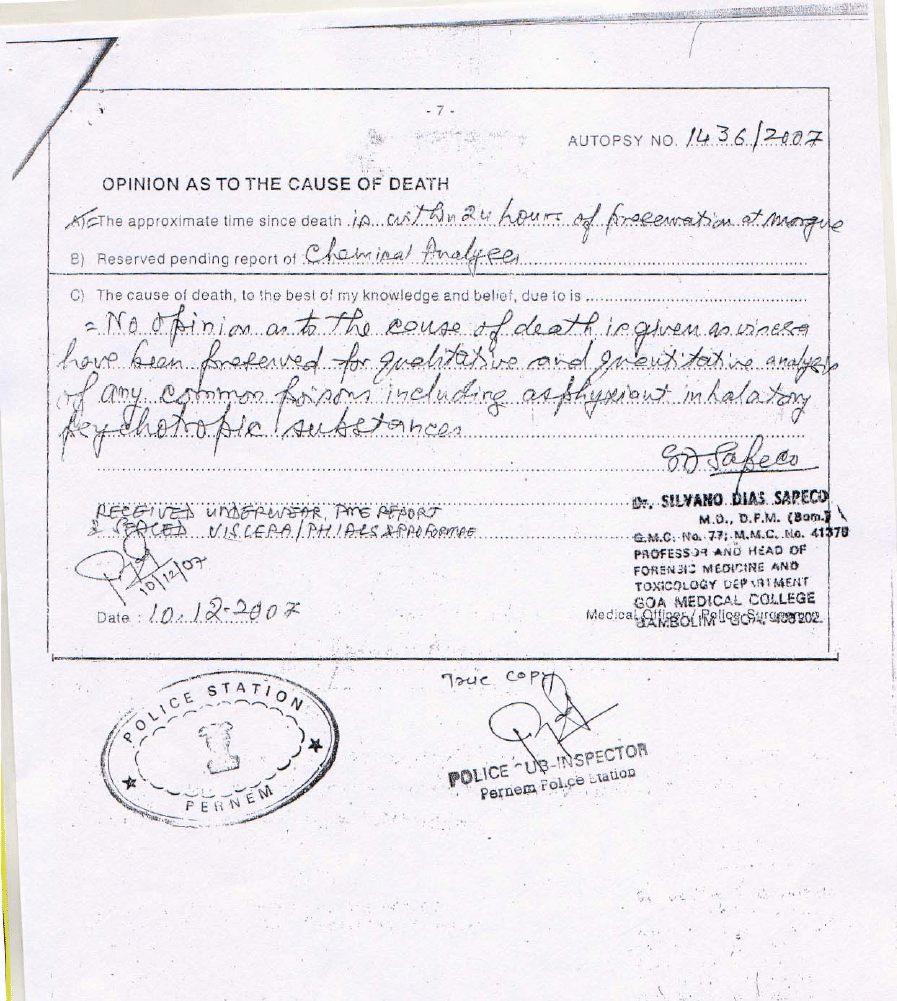 - 7 -
AUTOPSY NO. 1436/2007
OPINION AS TO THE CAUSE OF DEATH
A) The approximate time since death is within 24 hours of preservation at morgue
B) Reserved pending report of Chemical Analyses
C) The cause of death, to the best of my knowledge and belief, due to is
= No opinion as to the cause of death is given as viscera
have been preserved for qualitative and quantitative analysis
of any common poisons including asphyxiant inhalatory
psychotropic substances
SD Sapeco
Dr. SILVANO DIAS SAPECO
M.D., D.F.M. (Bom.)
G.M.C. No. 77; M.M.C. No. 41378
PROFESSOR AND HEAD OF
FORENSIC MEDICINE AND
TOXICOLOGY DEPARTMENT
GOA MEDICAL COLLEGE
BAMBOLIM - GOA. 403202.
Medical Officer / Police Surgeon
RECEIVED UNDERWEAR, PME REPORT
& SEALED VISCERA / PHIALS & PROFORMAE
10/12/07
Date : 10.12-2007
POLICE STATION
PERNEM
True copy
POLICE SUB-INSPECTOR
Pernem Police Station